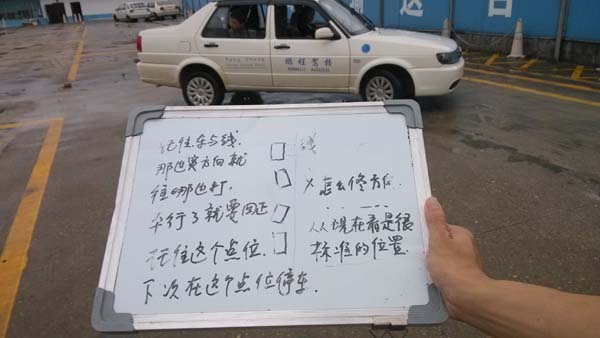 鹏程驾校
记住.车与线.
那边宽方向就
往哪边打.
平行了就要回正
记住这个点位.
下次在这个点位停车.
线
x怎么修方向.
从现在看是很
标准的位置.